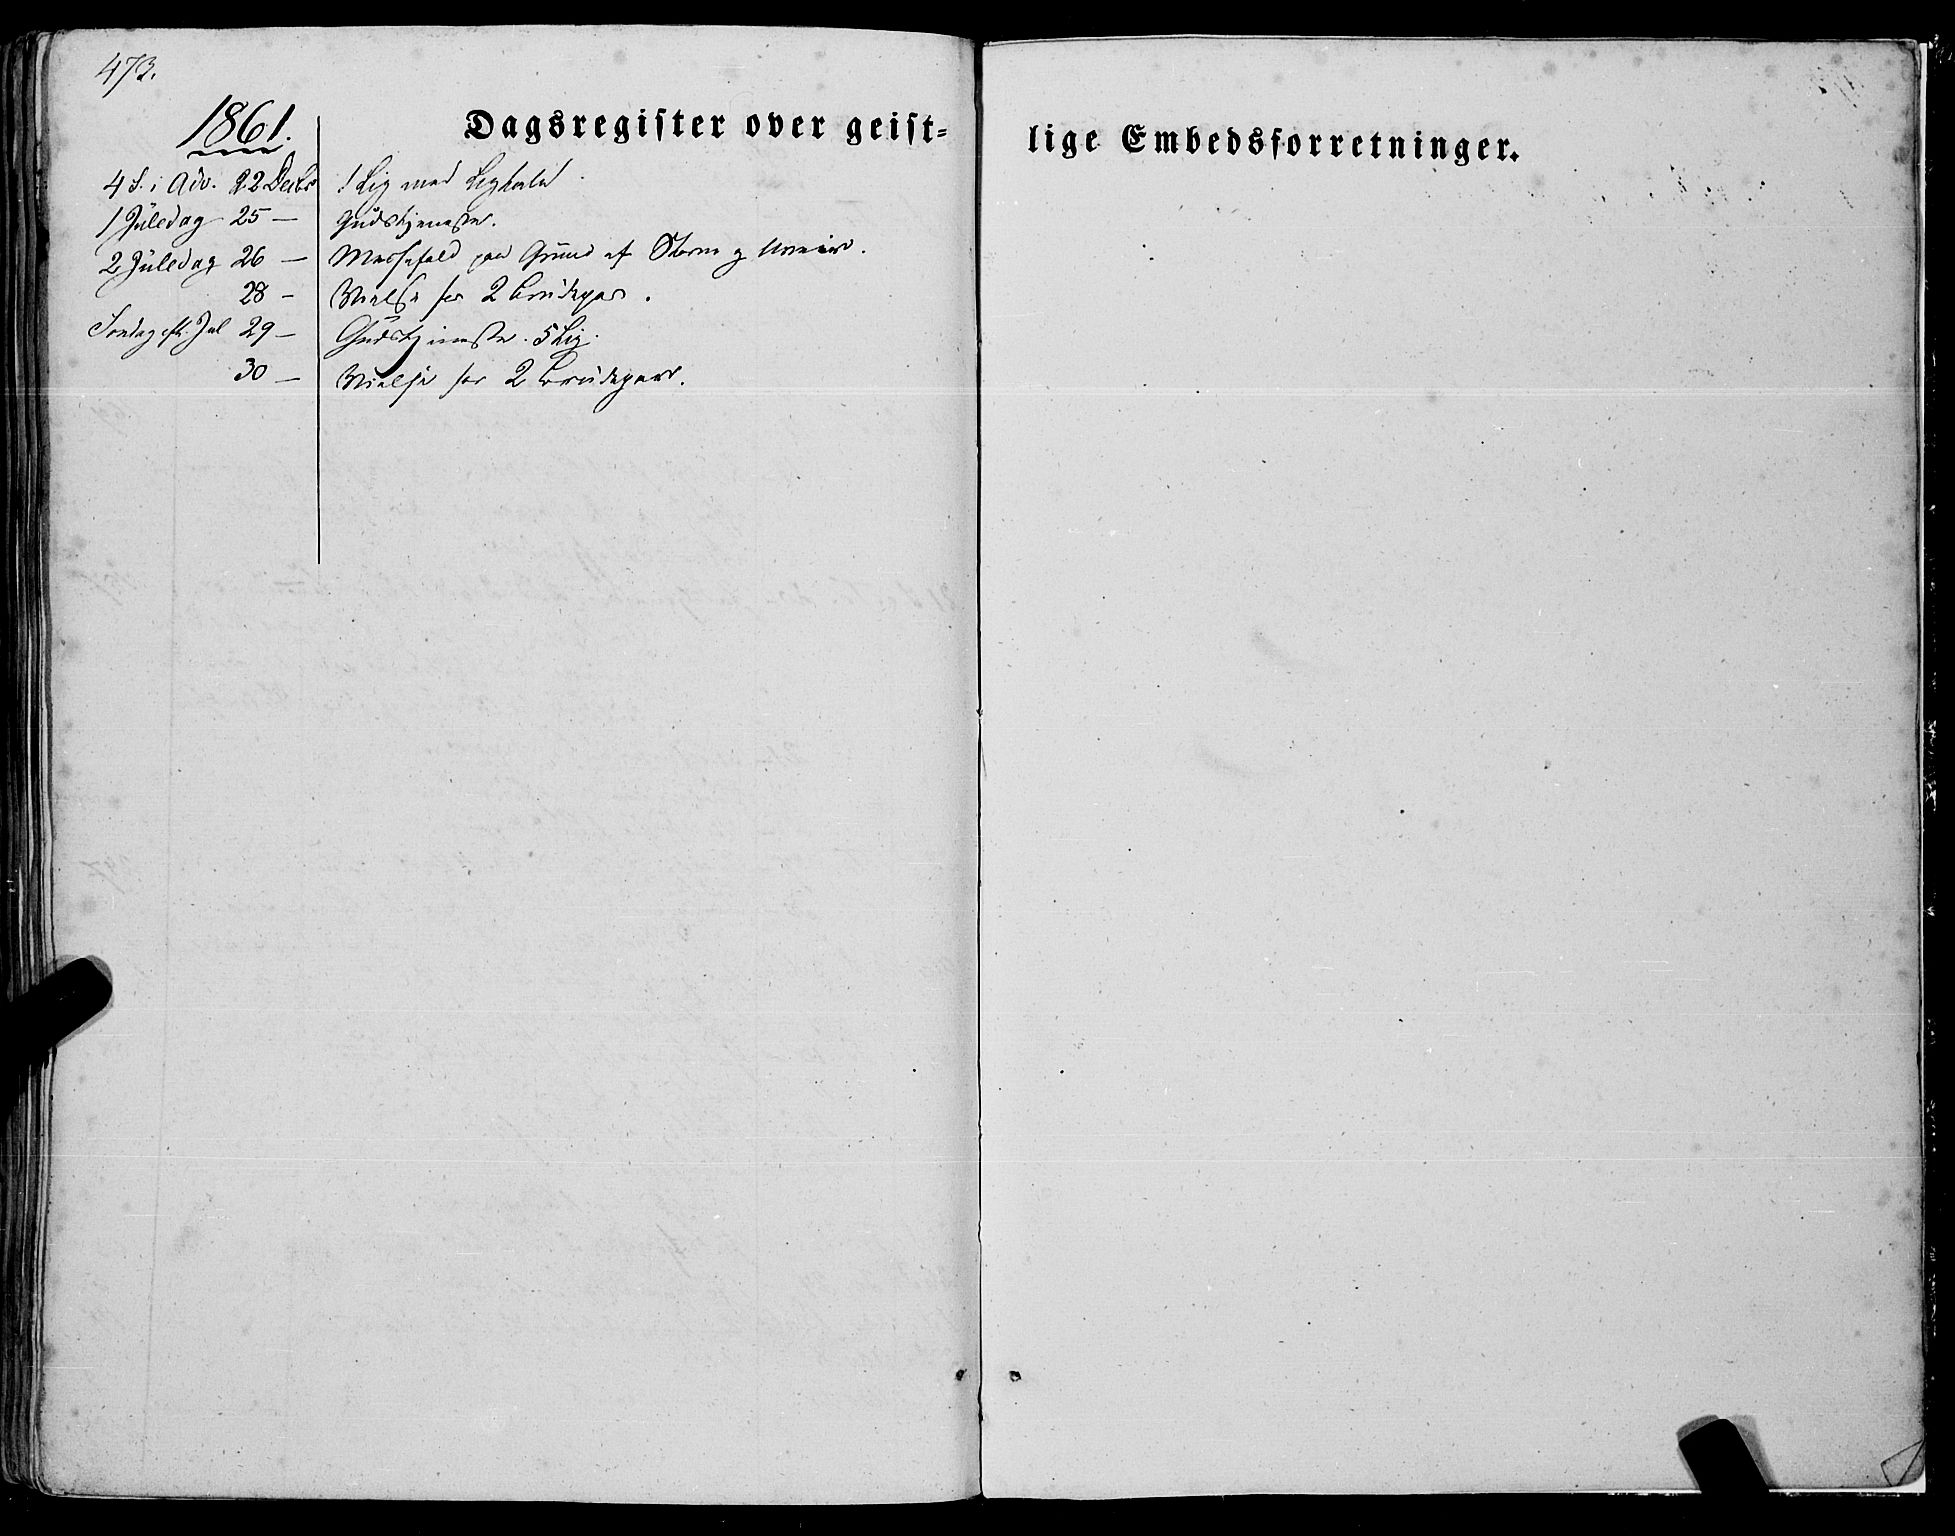 473.
Dagsregister over geist=
lige Embedsforretninger.
1861.
4 S. i Adv. 22 Decbr 1 Lig med Ligtale
1 Juledag 25 — Gudstjeneste.
2 Juledag 26 — Messefald paa Grund af Storm og Uveir.
28 — Vielse for 2 Brudepar.
Søndag eft. Jul 29 — Gudstjeneste. 5 Lig.
30 — Vielse for 2 Brudepar.